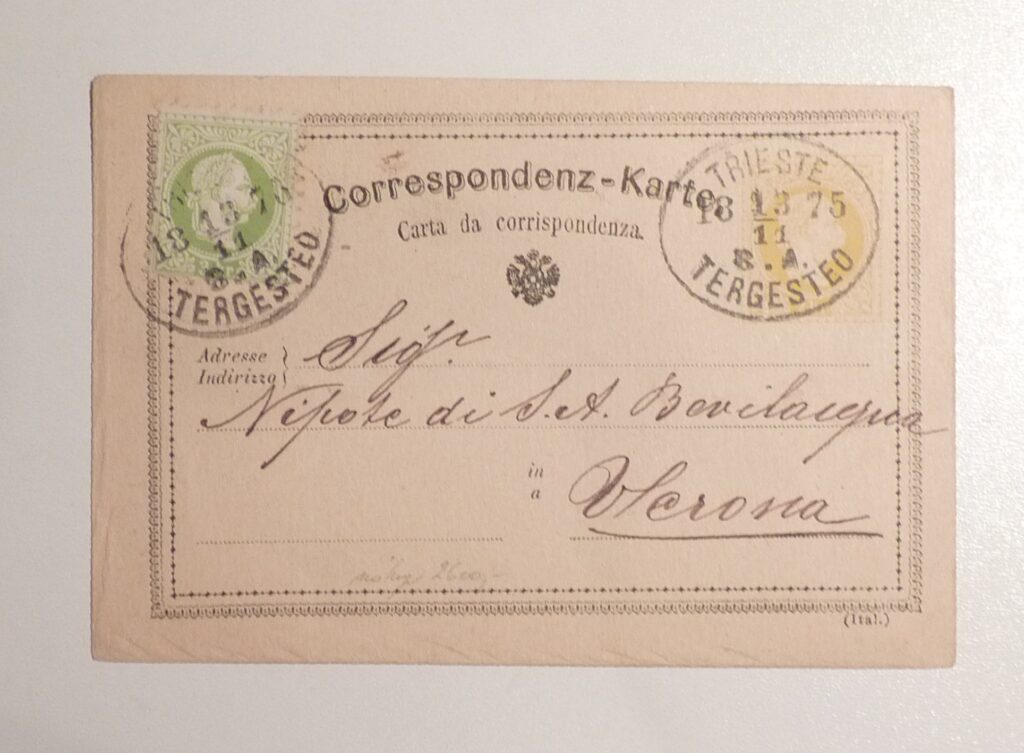 Correspondenz-Karte
Carta da corrispondenza.
18 13 75
11
S.A.
TERGESTEO
TRIESTE
18 13 75
11
S.A.
TERGESTEO
Adresse
Indirizzo
Sigr.
Nipote di S. A. Bevilacqua
in
a
Verona
2600,-
(Ital.)